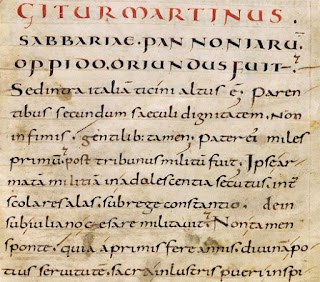 GITUR MARTINUS.
SABBARIAE. PANNONIARU
OPPIDO, ORIUNDUS FUIT
Sed intra italiā ticini altus ē. Paren
tibus secundum saeculi dignitatem, Non
infimis, gentilib; tamen, Pater ei miles
primū, post tribunus militū fuit, Ipse ar
matā militiā in adolescentia secutus, int̄
scolares alas, sub rege constantio. dein
sub iuliano cęsare militavit, Non tamen
sponte, quia a primis fere annis, divina po
tius servitute, sacra inlustris pueri inspi